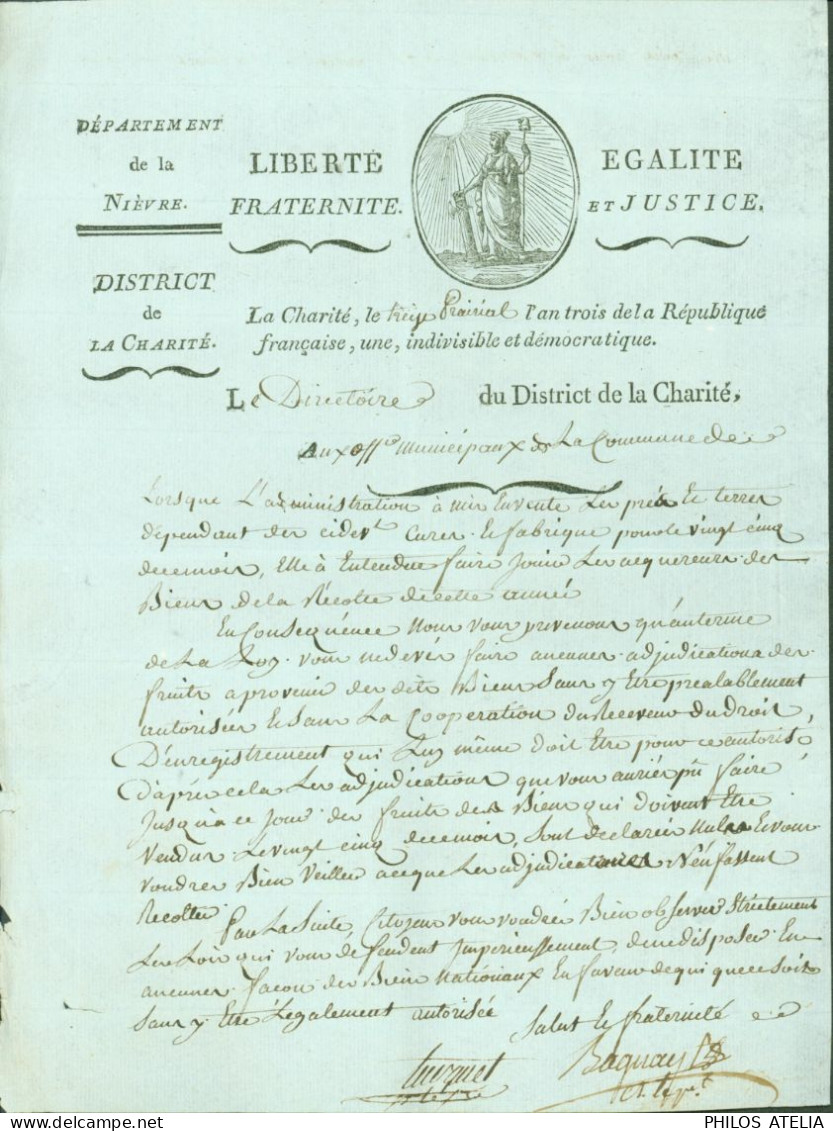 DÉPARTEMENT
de la
NIÈVRE.
LIBERTÉ
FRATERNITE.
EGALITE
ET JUSTICE,
DISTRICT
de
LA CHARITÉ.
La Charité, le treize Prairial l'an trois de la République
française, une, indivisible et démocratique.
Le Directoire du District de la Charité,
Aux offrs municipaux de La Commune de
Lorsque L'administration à mis En vente Les prés Et terres
dépendant des cidevt Cures & fabrique pour le vingt cinq
de ce mois, Elle à Entendue faire Jouir Les acquereurs des
Biens de la Récolte de cette année
En Consequénce Nous vous prevenons qu'au terme
de La Loy vous ne devés faire aucunes adjudications des
fruits a provenir des dits Biens Sans y Etre préalablement
autorisées & sans La Coopération du Receveur du droit
D'enregistrement qui Luy même doit Etre pour ce autorisé
d'après cela Les adjudications que vous auriés pû faire
Jusqu'à ce jour des fruits des Biens qui doivent Etre
Vendus Le vingt cinq de ce mois, sont declarées Nulles Et vous
voudres Bien Veiller a ce que Les adjudicataires N'en fassent
Recolte
Par La Suite, Citoyens vous voudrés Bien observer Strictement
Les Loix qui vous deffendent Impérieusement, de ne disposer En
aucunes façons des Biens Nationaux En faveur de qui que ce soit
sans y Etre Légalement autorisée
Salut & fraternité
PHILOS ATELIA